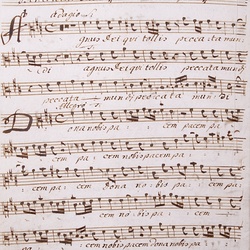 adagio
Agnus Dei qui tollis peccata mun
di agnus Dei qui tollis peccata mundi
peccata mundi peccata mundi
Allegro
Dona nobis pa cem pacem pa
cem pa cem nobis pacem pa
cem pa cem dona nobis pa cem pa
cem nobis pa cem
pa cem nobis pacem dona nobis pa